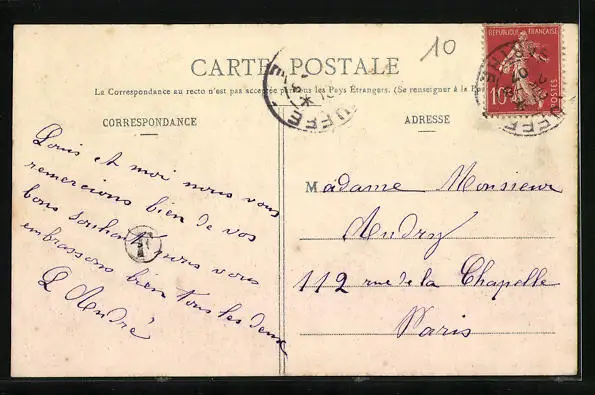 10
RÉPUBLIQUE FRANÇAISE
10
POSTES
CARTE POSTALE
La Correspondance au recto n'est pas acceptée par tous les Pays Étrangers. (Se renseigner à la Poste)
CORRESPONDANCE
ADRESSE
Louis et moi nous vous
remercions bien de vos
bons souhaits nous vous
embrassons bien tous les deux
L André
Madame Monsieur
Audry
112 rue de la Chapelle
Paris